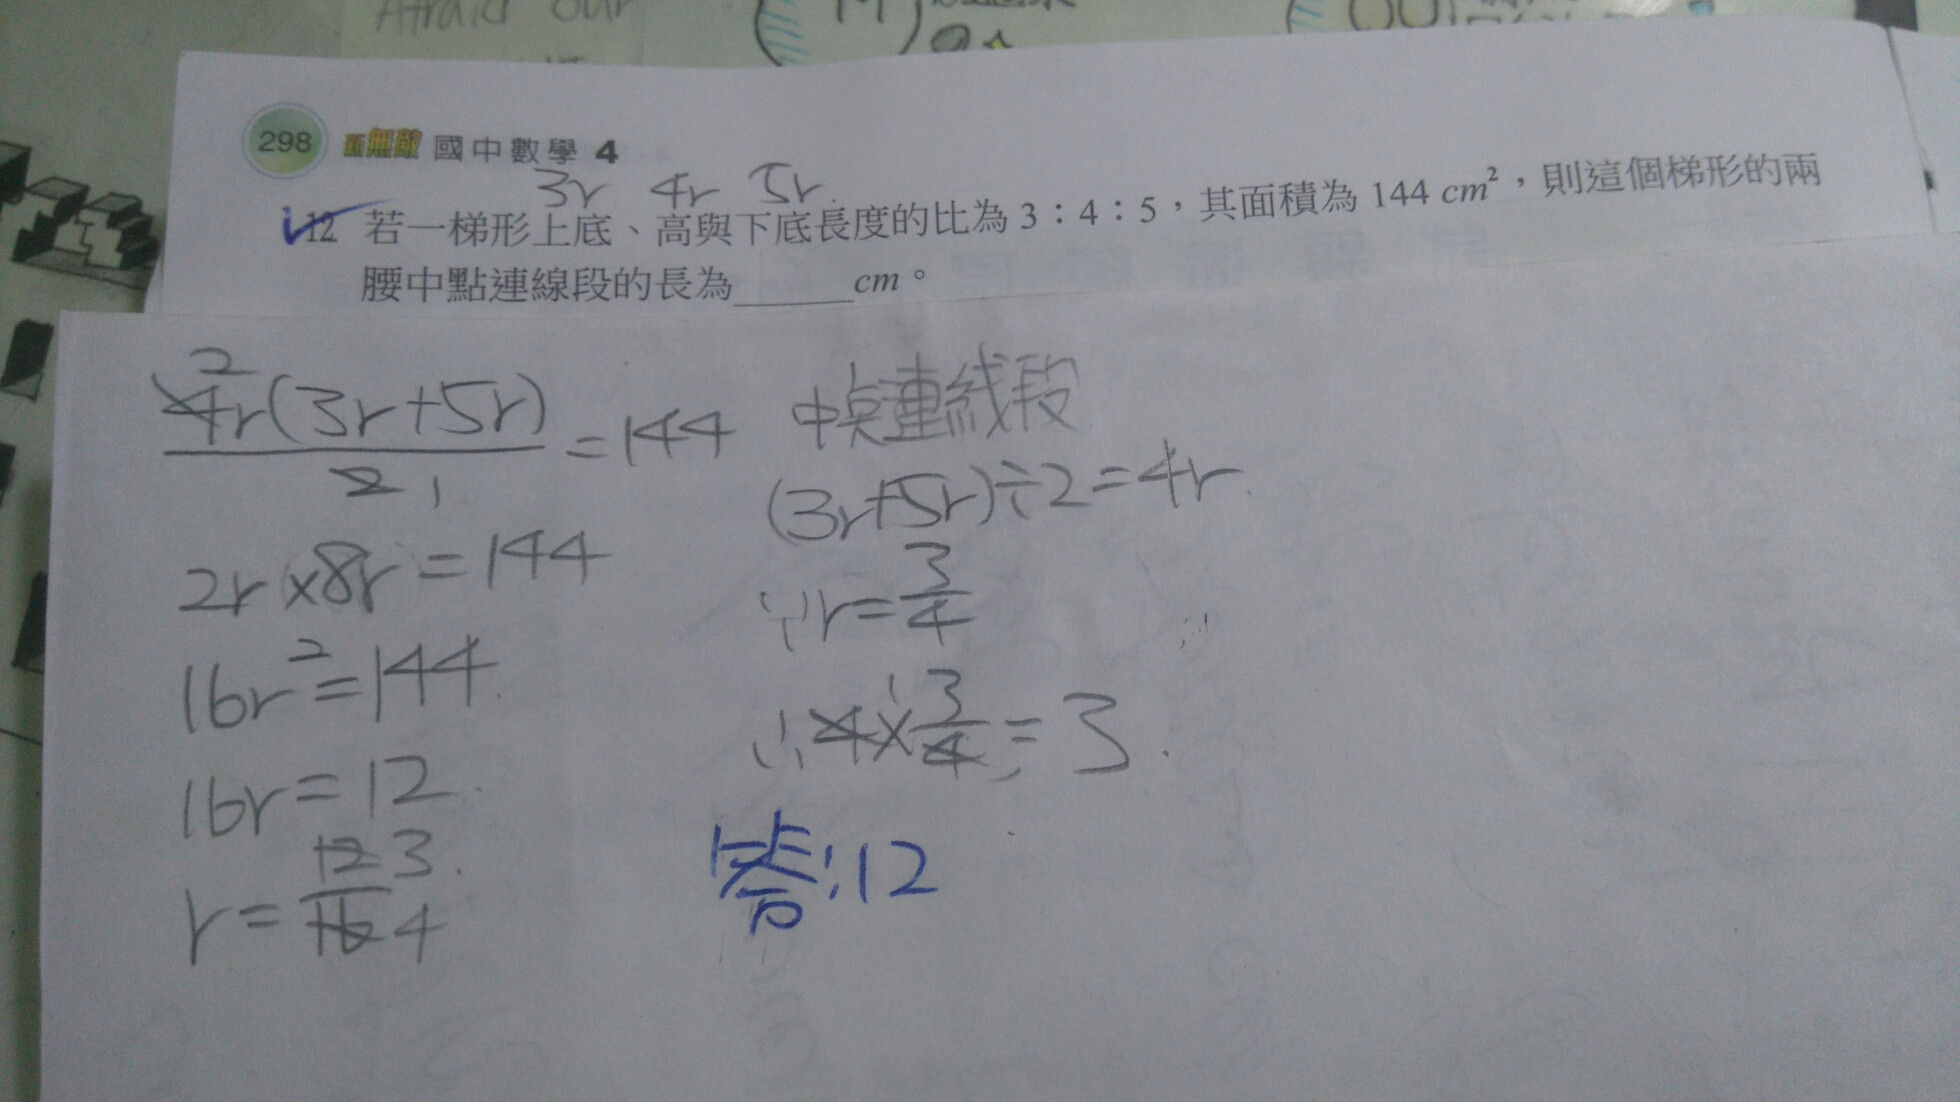 Afraid Our
298 新無敵 國中數學 4
3r 4r 5r
12 若一梯形上底、高與下底長度的比為 3：4：5，其面積為 144 cm²，則這個梯形的兩
腰中點連線段的長為______cm。
4r(3r+5r)/2 = 144
2
1
2r×8r=144
16r²=144
16r=12
r=12/16
3
4
中点連线段
(3r+5r)÷2=4r
∵r=3/4
∴4×3/4=3
1
1
答:12